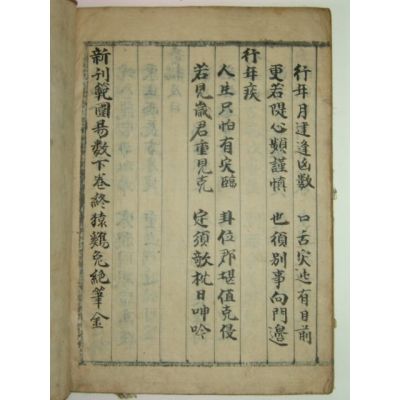 行年月建逢凶数 口舌灾迍有目前
更若隄心頻謹慎 也須别事向門邊
行年疾
人生只怕有灾臨 卦位那堪值克侵
若見歲君重見克 定須欹枕日呻吟
新刊範圍易数下卷終猿鷄兔絶筆金